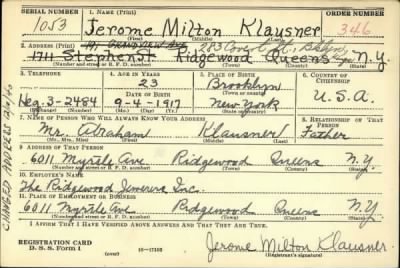 SERIAL NUMBER 1. NAME (Print) ORDER NUMBER
1053 Jerome Milton Klausner 346
(First) (Middle) (Last)
2. ADDRESS (Print)
283 Covert St., Bklyn
1711 Stephen St. Ridgewood Queens N.Y.
(Number and street or R. F. D. number) (Town) (County) (State)
3. TELEPHONE 4. AGE IN YEARS 5. PLACE OF BIRTH 6. COUNTRY OF CITIZENSHIP
23 Brooklyn
DATE OF BIRTH (Town or county)
Heg. 3-2484 9-4-1917 New York U.S.A.
(Exchange) (Number) (Mo.) (Day) (Yr.) (State or country)
7. NAME OF PERSON WHO WILL ALWAYS KNOW YOUR ADDRESS 8. RELATIONSHIP OF THAT PERSON
Mr. Abraham Klausner Father
(Mr., Mrs., Miss) (First) (Middle) (Last)
9. ADDRESS OF THAT PERSON
6011 Myrtle Ave. Ridgewood Queens N.Y.
(Number and street or R. F. D. number) (Town) (County) (State)
10. EMPLOYER'S NAME
The Ridgewood Jewelers Inc.
11. PLACE OF EMPLOYMENT OR BUSINESS
6011 Myrtle Ave. Ridgewood Queens N.Y.
(Number and street or R. F. D. number) (Town) (County) (State)
I AFFIRM THAT I HAVE VERIFIED ABOVE ANSWERS AND THAT THEY ARE TRUE.
REGISTRATION CARD
D. S. S. Form 1 (over) 16-17105 Jerome Milton Klausner
(Registrant's signature)
CHANGED ADDRESS